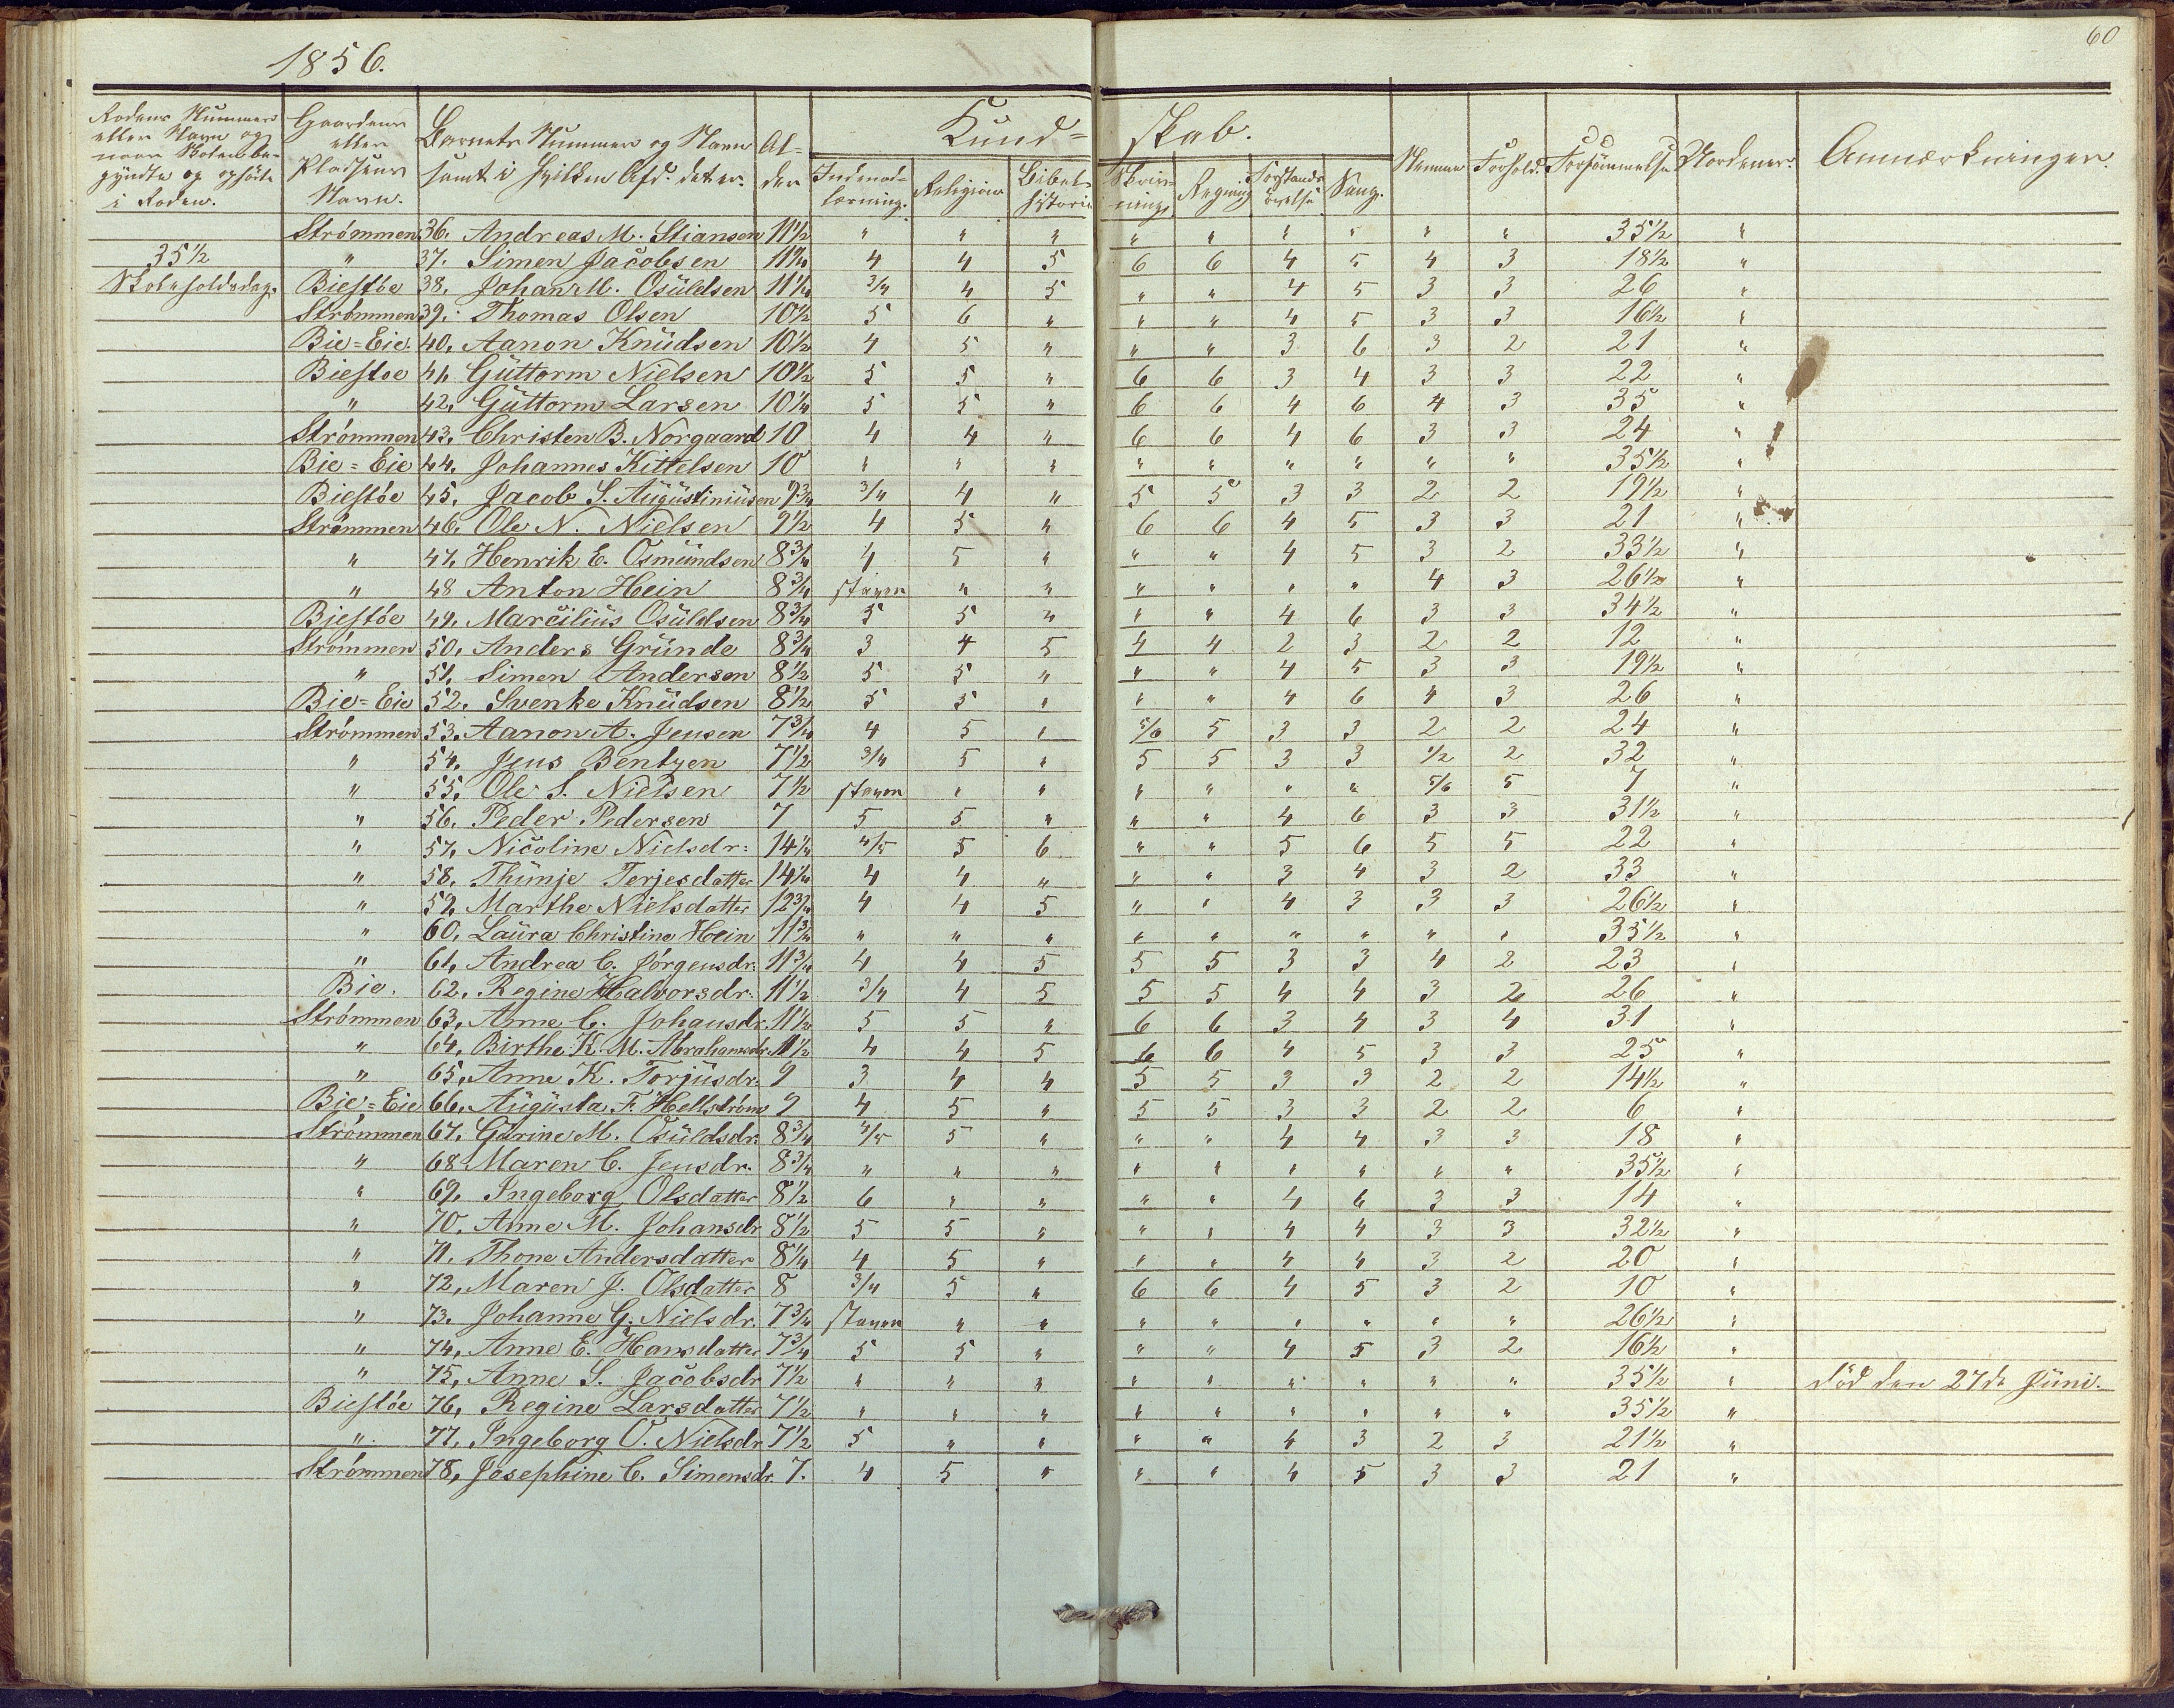 60
1856.
Rodens Nummer eller Navn og naar Skolen begyndte og ophörte i Roden.
Gaardens eller Pladsens Navn.
Barnets Nummer og Navn samt i hvilken Afd. det er.
Alder
Kundskab.
Indenadlæsning.
Religion
Bibelhistorie
Skrivning
Regning
Forstandsøvelse
Sang.
Nemme
Forhold.
Forsömmelse
Anmærkninger.
Strømmen 36. Andreas M. Stiansen 11½ " " " " " " " " " 35½ "
35½ " 37. Simen Jacobsen 11¼ 4 4 5 6 6 4 5 4 3 18½ "
Skoleholdsdage Biestøe 38. Johan M. Osuldsen 11¼ 3/4 4 5 " " 4 5 3 3 26 "
Strømmen 39. Thomas Olsen 10½ 5 6 " " " 4 5 3 3 16½ "
Bie=Eie. 40, Aanon Knudsen 10½ 4 5 " " " 3 6 3 2 21 "
Biestøe 41, Guttorm Nielsen 10½ 5 5 " 6 6 3 4 3 3 22 "
" 42, Guttorm Larsen 10¼ 5 5 " 6 6 4 6 4 3 35 "
Strømmen 43, Christen B. Norgaard 10 4 4 " 6 6 4 6 3 3 24 "
Bie=Eie 44. Johannes Kittelsen 10 " " " " " " " " " 35½ "
Biestøe 45. Jacob S. Augustiniusen 9¾ 3/4 4 " 5 5 3 3 2 2 19½ "
Strømmen 46. Ole N. Nielsen 9½ 4 5 " 6 6 4 5 3 3 21 "
" 47, Henrik E. Osmundsen 8¾ 4 5 " " " 4 5 3 2 33½ "
" 48 Anton Hein 8¾ staven " " " " " " 4 3 26½ "
Biestøe 49. Marcilius Osuldsen 8¾ 5 5 " " " 4 6 3 3 34½ "
Strømmen 50, Anders Grunde 8¾ 3 4 5 4 4 2 3 2 2 12 "
" 51, Simen Andersen 8½ 5 5 " " " 4 5 3 3 19½ "
Bie=Eie 52. Svenke Knudsen 8½ 5 5 " " " 4 6 4 3 26 "
Strømmen 53. Aanon A. Jensen 7¾ 4 5 " 5/6 5 3 3 2 2 24 "
" 54, Jens Bentzen 7½ 3/4 5 " 5 5 3 3 1/2 2 32 "
" 55, Ole S. Nielsen 7½ staven " " " " " " 5/6 5 7 "
" 56. Peder Pedersen 7 5 5 " " " 4 6 3 3 31½ "
" 57, Nicoline Nielsdr: 14¼ 4/5 5 6 " " 5 6 5 5 22 "
" 58. Thunje Terjesdatter 14¼ 4 4 " " " 3 4 3 2 33 "
" 59, Marthe Nielsdatter 12¾ 4 4 5 " " 4 3 3 3 26½ "
" 60, Laura Christine Hein 11¾ " " " " " " " " " 35½ "
" 61, Andrea C. Jørgensdr. 11¾ 4 4 5 5 5 3 3 4 2 23 "
Bie. 62, Regine Halvorsdr. 11½ 3/4 4 5 5 5 4 4 3 2 26 "
Strømmen 63, Anne C. Johansdr. 11½ 5 5 " 6 6 3 4 3 4 31 "
" 64, Birthe K. M. Abrahamsdr. 11½ 4 4 5 6 6 4 5 3 3 25 "
" 65, Anne K. Torjusdr. 9 3 4 4 5 5 3 3 2 2 14½ "
Bie=Eie 66, Augusta F. Hellstrøm 9 4 5 " 5 5 3 3 2 2 6 "
Strømmen 67, Gurine M. Osuldsdr. 8¾ 4/5 5 " " " 4 4 3 3 18 "
" 68 Maren C. Jensdr. 8¾ " " " " " " " " " 35½ "
" 69, Ingeborg Olsdatter 8½ 6 " " " " 4 6 3 3 14 "
" 70, Anne M. Johansdr 8½ 5 5 " " " 4 4 3 3 32½ "
" 71. Thone Andersdatter 8¼ 4 5 " " " 4 4 3 2 20 "
" 72, Maren J. Olsdatter 8 3/4 5 " 6 6 4 5 3 2 10 "
" 73. Johanne G. Nielsdr. 7¾ staven " " " " " " " " 26½ "
" 74, Anne E. Hansdatter 7¾ 5 5 " " " 4 5 3 2 16½ "
" 75, Anne S. Jacobsdr 7½ " " " " " " " " " 35½ " död den 27de Juni.
Biestøe 76, Regine Larsdatter 7½ " " " " " " " " " 35½ "
" 77, Ingeborg O. Nielsdr 7½ 5 " " " " 4 3 2 3 21½ "
Strømmen 78, Josephine C. Simensdr. 7. 4 5 " " " 4 5 3 3 21 "